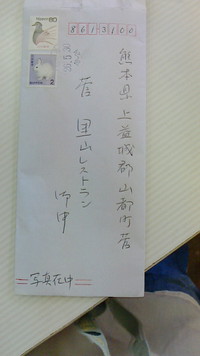 8613100
熊本県上益城郡山都町菅
菅 里山レストラン
御中
写真在中